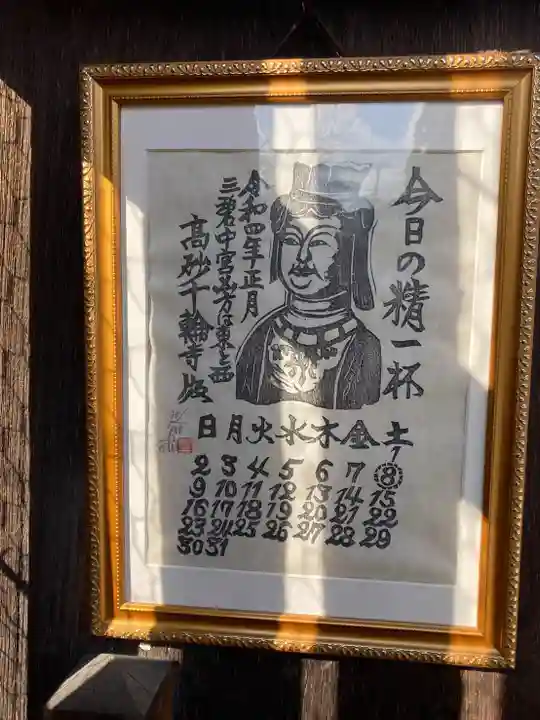 今日の精一杯
令和四年正月
三碧中宮必方は東と西
高砂千輪寺版
日月火水木金土
1
2 3 4 5 6 7 8
9 10 11 12 13 14 15
16 17 18 19 20 21 22
23 24 25 26 27 28 29
30 31